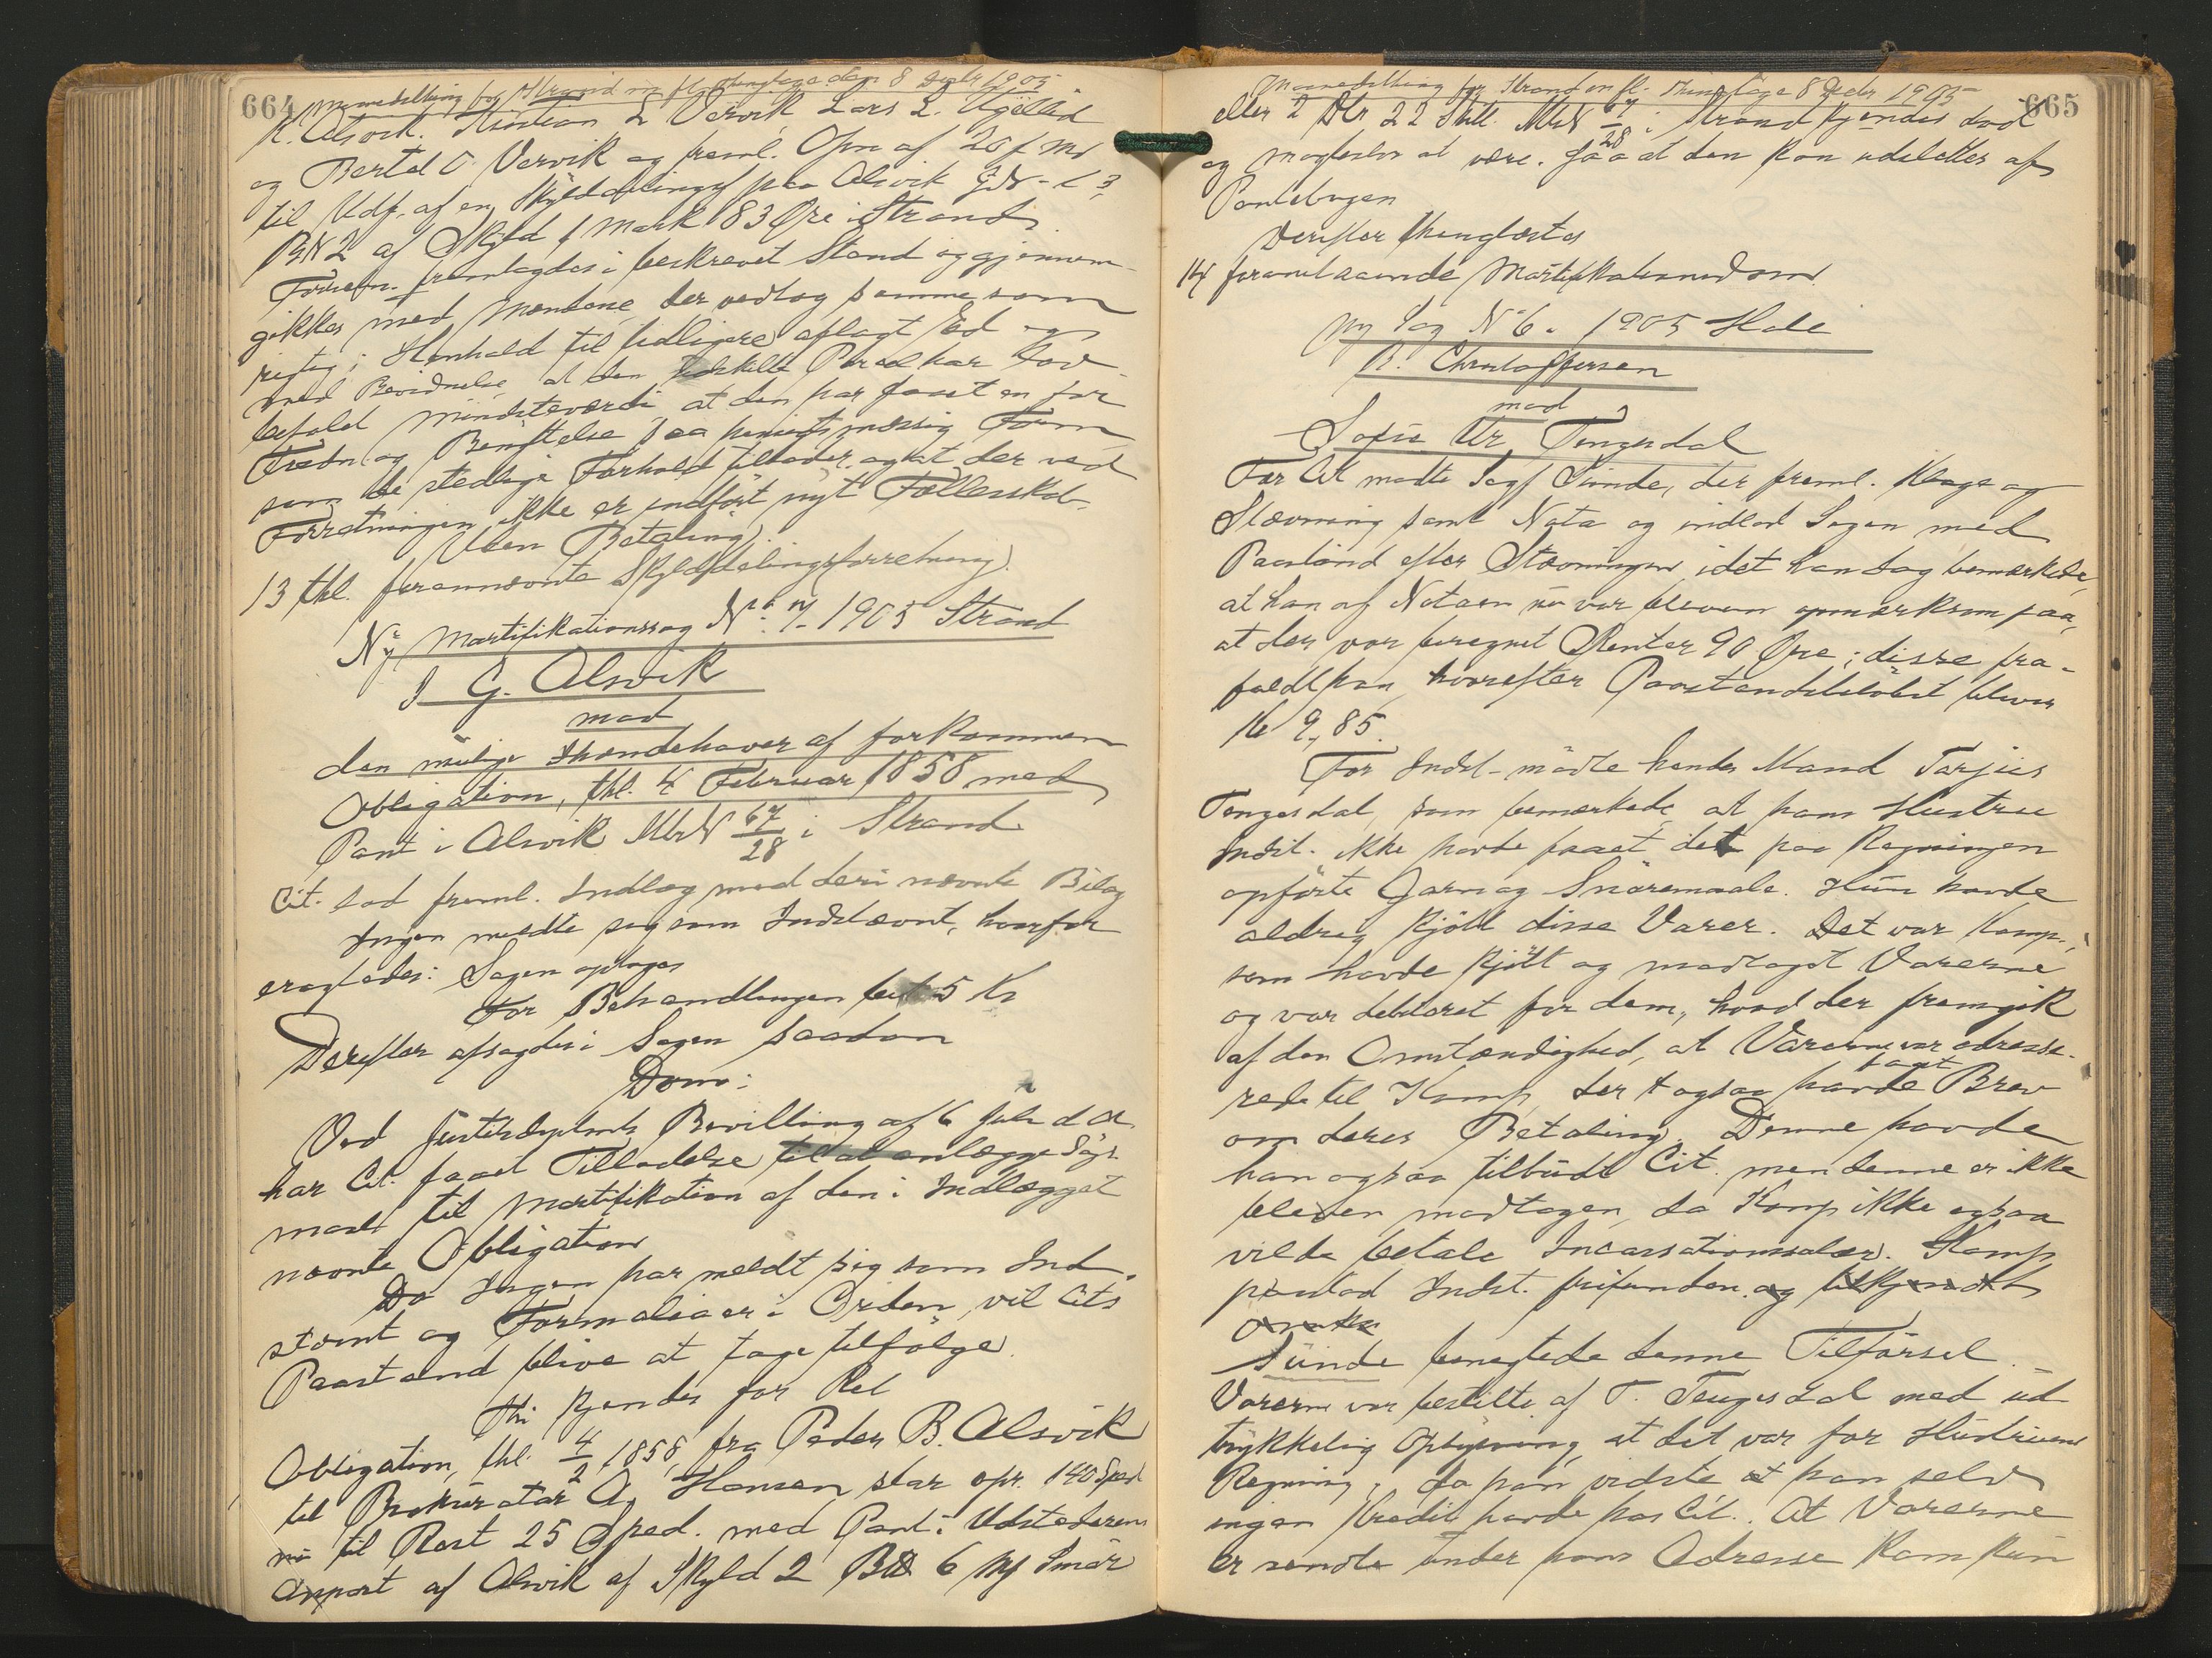 664
Maanedsthing for Strand m fl. Thinglage den 8 Decbr 1905
K. Alsvik. Kristian L Vervik Lars L.
og Bertel O. Vervik og freml. Opn af 20 f. M.
til Udf. af en Skylddeling paa Alsvik GN-
BN 2 af Skyld 1 Mark 83 Øre i Strand
Forretn. fremlagdes i beskrevet Stand og gjennem-
gikkes med Mændene, der vedtog samme som
rigtig i Henhold til tidligere aflagt Ed og
med Beedigelse, at den fraskilte Parcel har Lov-
befalet Mindsteværdi at den har faaet en for
Træde og Benyttelse saa hensigtsmæssig Form
som de stedlige Forhold tillader og at der ved
Forretningen ikke er indført nyt Fællesskab.
Uden Betaling
13 thl. forannævnte Skylddelingsforretning
Ny Mortifikationssag No. 7 - 1905 Strand
I G. Alsvik
mod
den mulige Ihændehaver af forkommen
Obligation, thl. 4 Februar 1858 med
Pant i Alsvik MtrN 67/28 i Strand
Cit. lod freml. Indlæg med deri nævnte Bilag
Ingen meldte sig som Indstævnt, hvorfor
eragtedes: Sagen optages
For Behandlingen bet 5 Kr
Derefter afsagdes i Sagen saadan
Dom:
Ved Justitsdeptmts Bevilling af 6 Juli d A.
har Cit. faaet Tilladelse til at anlægge Sögs-
maal til Mortifikation af den i Indlægget
nævnte Obligation
Da Ingen har meldt sig som Ind-
stævnt og Formalia er i Orden, vil Cits
Paastand blive at tage tilfølge.
Thi kjendes for Ret
Obligation, thl. 4/2 1858, fra Peder B. Alsvik
til Prokurator A. Hansen stor opr. 140 Sped
nu til Rest 25 Sped. med Pant i Udstederens
Anpart af Alsvik af Skyld 2 6 Mk Smör
665
Maanedsthing for Strand m fl. Thinglage 8 Decbr 1905
eller 2 Dlr 22 Skill. MtrN 67/28 i Strand kjendes død
og magtesløs at være. Saa at den kan udslettes af
Pantebogen
Derefter thinglæstes
14 foranstaaende Mortifikationsdom
Ny Sag No 6. 1905 Hole
R. Christoffersen
mod
Sofie Tengesdal
For Cit mødte Sagf Sunde, der freml. Klage og
Stævning samt Nota og indlod Sagen med
Paastand efter Stævningen, idet han dog bemærkede,
at han af Notaen nu var bleven opmærksom paa,
at der var beregnet Renter 90 Øre; disse fra-
faldt han, hvorefter Paastandsbeløbet bliver
Kr 9,85.
For Indst. mödte hendes Mand Tarjers
Tengesdal, som bemærkede, at hans Hustrue
Indst. ikke havde faaet det paa Regningen
opförte Garn og Snöremaale. Hun havde
aldrig kjöbt disse Varer. Det var Komp.,
som havde kjöbt og modtaget Varerne
og var debiteret for dem, hvad der fremgik
af den Omstændighed, at Varerne var adresse-
rede til Komp, der ogsaa havde faaet Brev
om deres Betaling. Denne havde
han ogsaa tilbudt Cit. men denne er ikke
bleven modtagen, da Komp ikke ogsaa
vilde betale Incassationssalær. Komp
paastod Indst. frifunden og tilkjendt
Omk.
Sunde benegtede denne Tilförsel.
Varerne var bestilte af T. Tengesdal med ud-
trykkelig Oplysning, at det var for Hustruens
Regning, da han vidste at han selv
ingen Kredit havde hos Cit. At Varerne
er sendte under hans Adresse kom kun